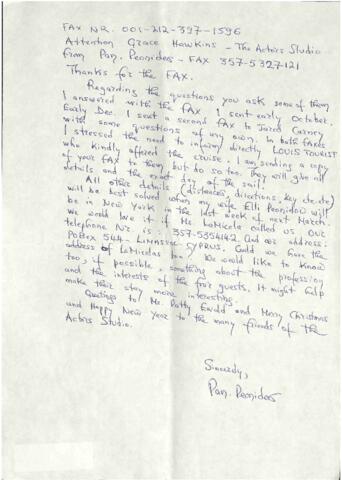 FAX NR. 001-212-397-1596
Attention Grace Hawkins - The Actors Studio
from Pan. Peonides - FAX 357-5327-121
Thanks for the FAX.
Regarding the questions you ask some of them
I answered with the FAX I sent early October.
Early Dec. I sent a second FAX to Jared Carney
with some questions of my own. In both FAXES
I stressed the need to inform directly LOUIS TOURIST
who kindly offered the cruise. I am sending a copy
of your FAX to them but do so too. They will give all
details and the exact day of the sail!
All other details (distances, directions, key etc. etc)
will be best solved when my wife Elli Peonidou will
be in New York in the last week of next March.
We would love it if Ms LoMicola called us. Our
telephone Nr. is: 357-5354142. And our address:
POBox 544 - Limassol CYPRUS. Could we have the
address of LoMicolas too? We would like to know
too, if possible, something about the profession
and the interests of the four guests. It might help
make their stay more interesting.
Greetings to Ms. Patty Ewald and Merry Christmas
and Happy New Year to the many friends of the
Actors Studio.
Sincerely,
Pan. Peonides